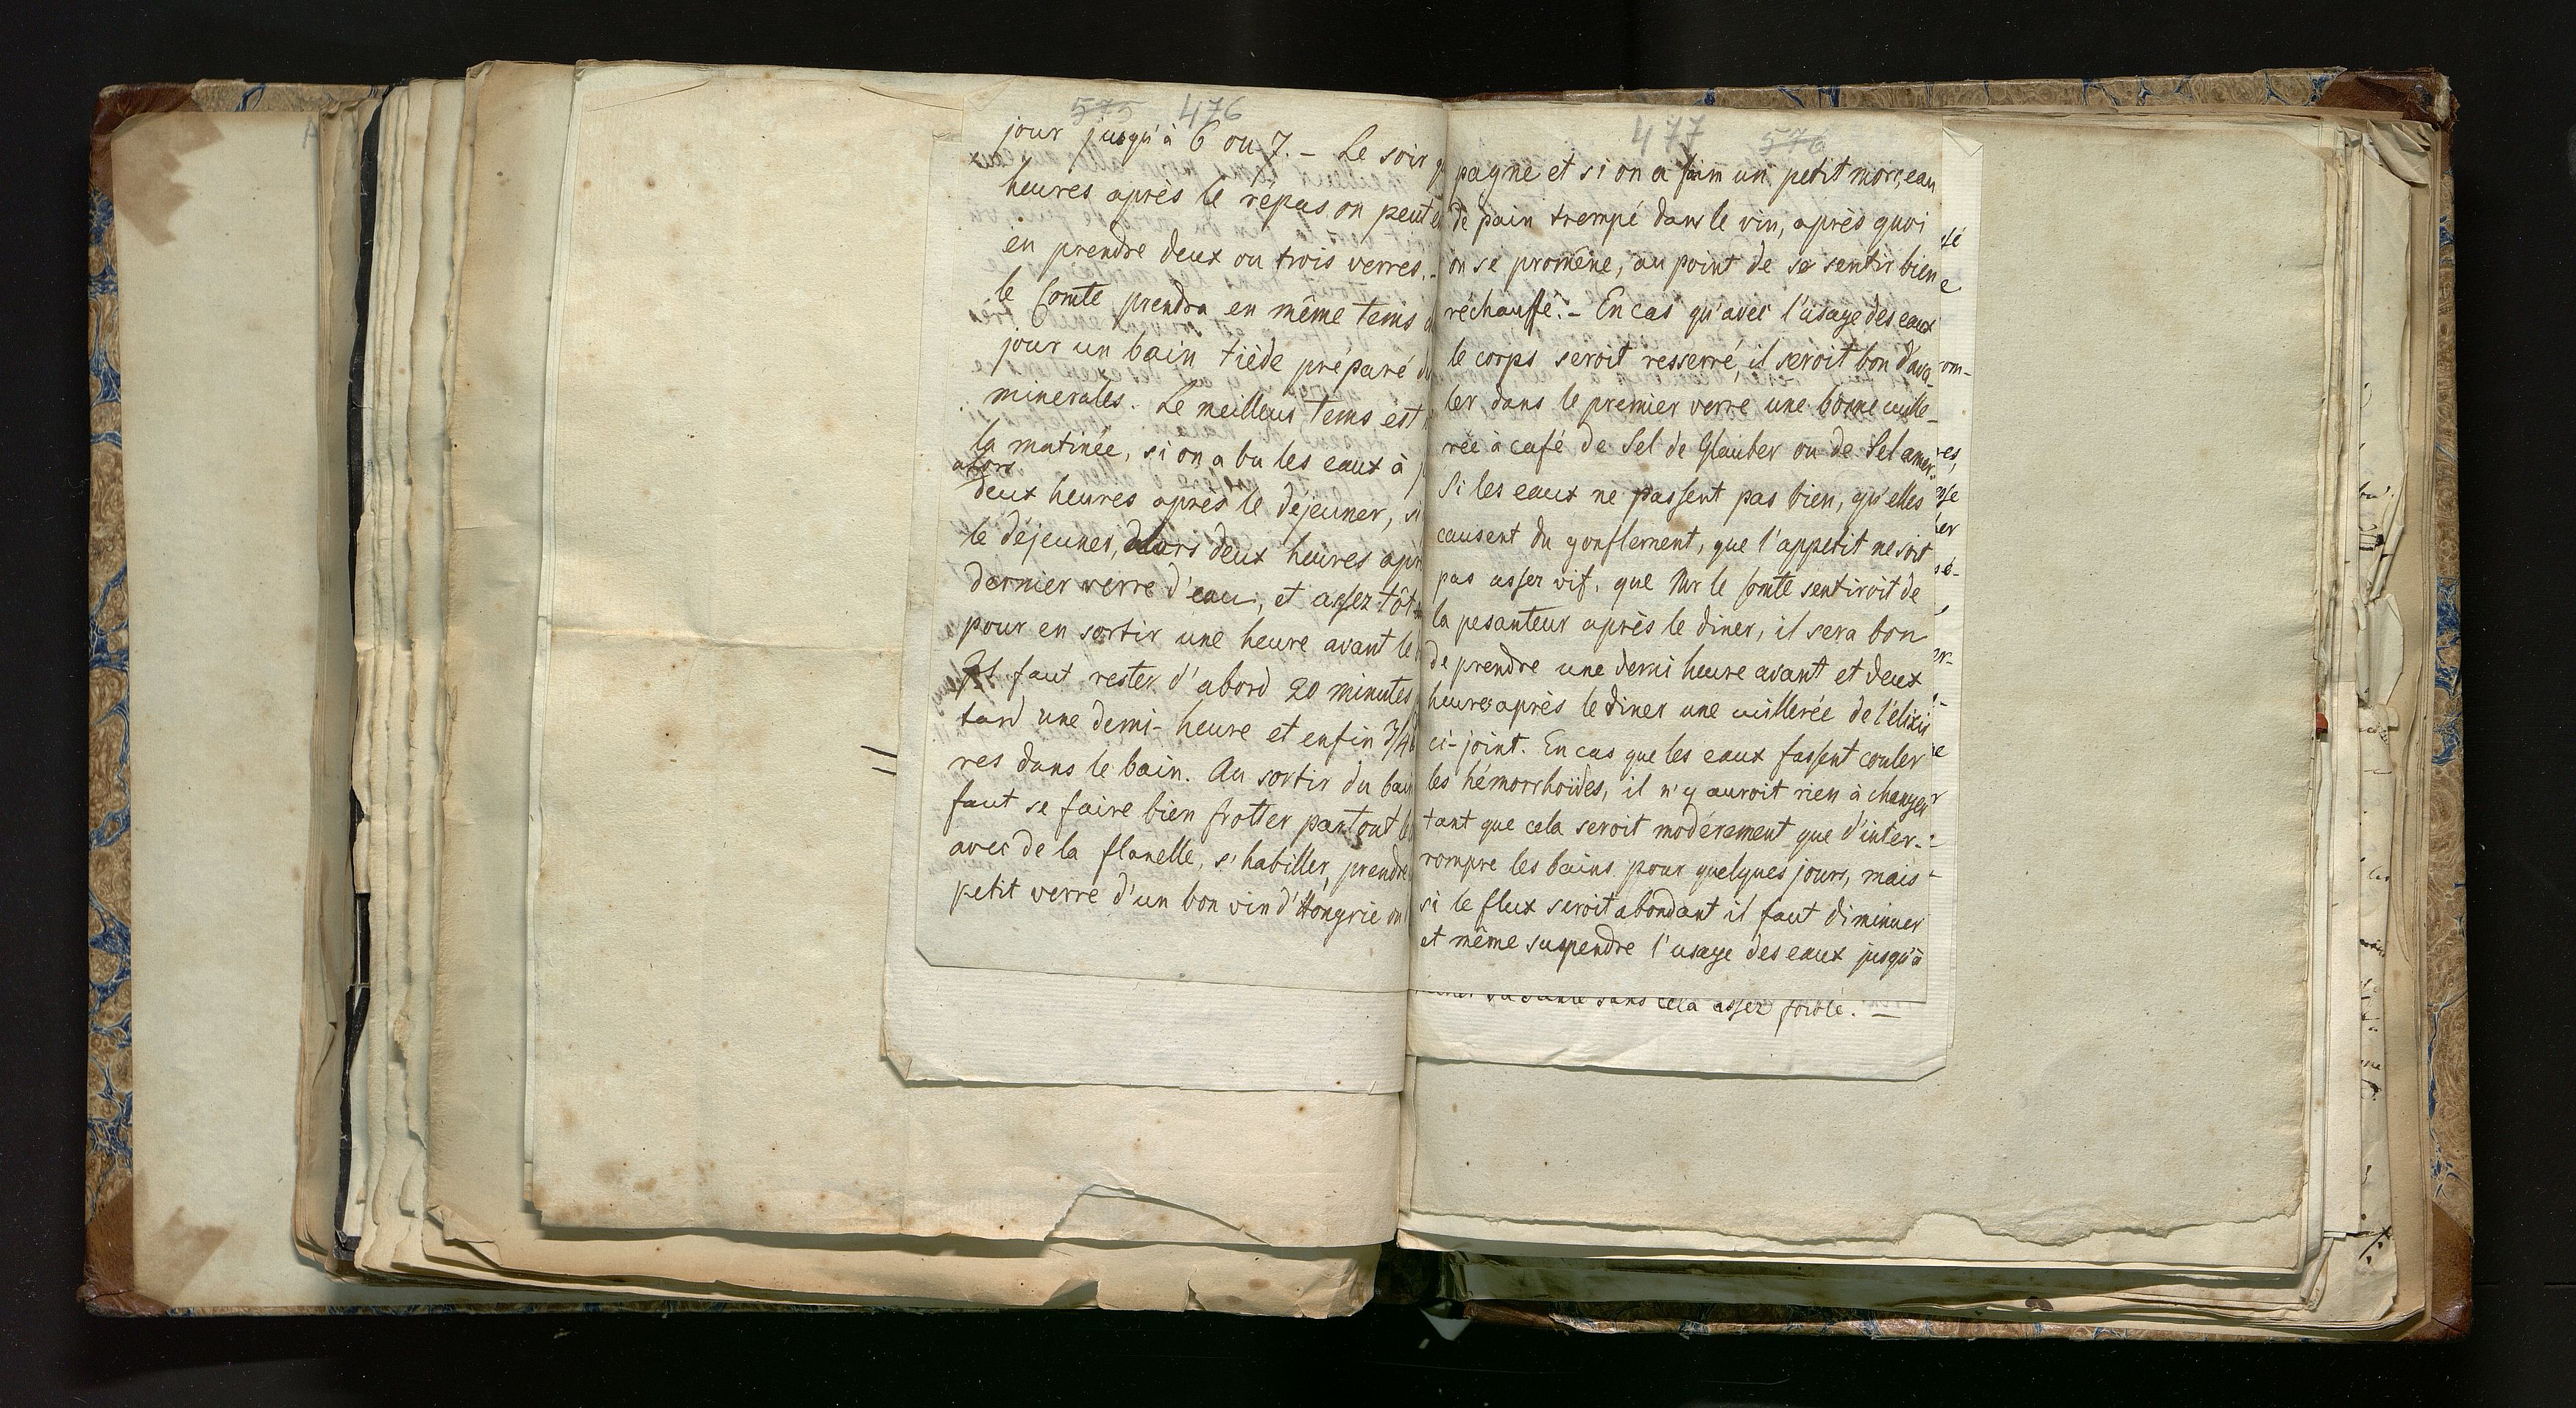 575 476
jour jusqu'à 6 ou 7. – Le soir
heures après le répas on peut
en prendre deux ou trois verres. –
le Comte prendra en même tems
jour un bain tiède préparé
minerales. Le meilleur tems est
la matinée, si on a bu les eaux à
alors
deux heures après le dejeuner, si
le déjeuner, alors deux heures apr
dernier verre d'eau, et assez tôt
pour en sortir une heure avant le
Il faut rester d'abord 20 minutes
tard une demi-heure et enfin 3/4
res dans le bain. Au sortir du bain
faut se faire bien frotter partout
avec de la flanelle, s'habiller, prendre
petit verre d'un bon vin d'Hongrie ou
477 576
pagne et si on a faim un petit morceau
de pain trempé dans le vin, après quoi
on se promène, au point de se sentir bien
réchauffé. – En cas qu'avec l'usage des eaux
le corps seroit resserré, il seroit bon d'ava-
ler dans le premier verre une bonne cuille-
rée à café de Sel de Glauber ou de Sel amer.
Si les eaux ne passent pas bien, qu'elles
causent du gonflement, que l'appetit ne soit
pas assez vif, que Mr le Comte sentiroit de
la pesanteur après le diner, il sera bon
de prendre une demi heure avant et deux
heures après le diner une cuillerée de l'élixir
ci-joint. En cas que les eaux fassent couler
les hémorrhoïdes, il n'y auroit rien à changer
tant que cela seroit modérement que d'inter-
rompre les bains pour quelques jours, mais
si le flux seroit abondant il faut diminuer
et même suspendre l'usage des eaux jusqu'à
sans cela assez foible. –